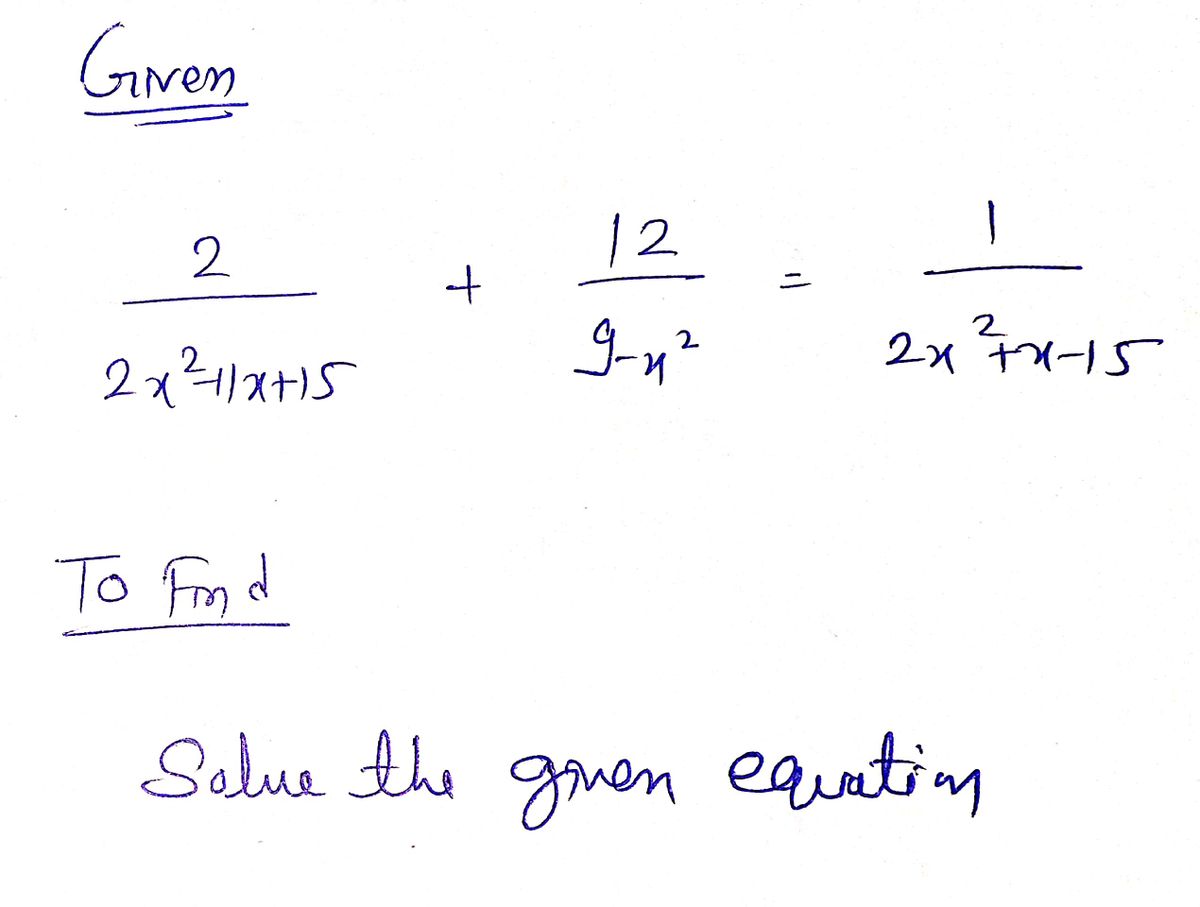 Given
2/(2x²-11x+15) + 12/(9-x²) = 1/(2x²+x-15)
To Find
Solve the given equation